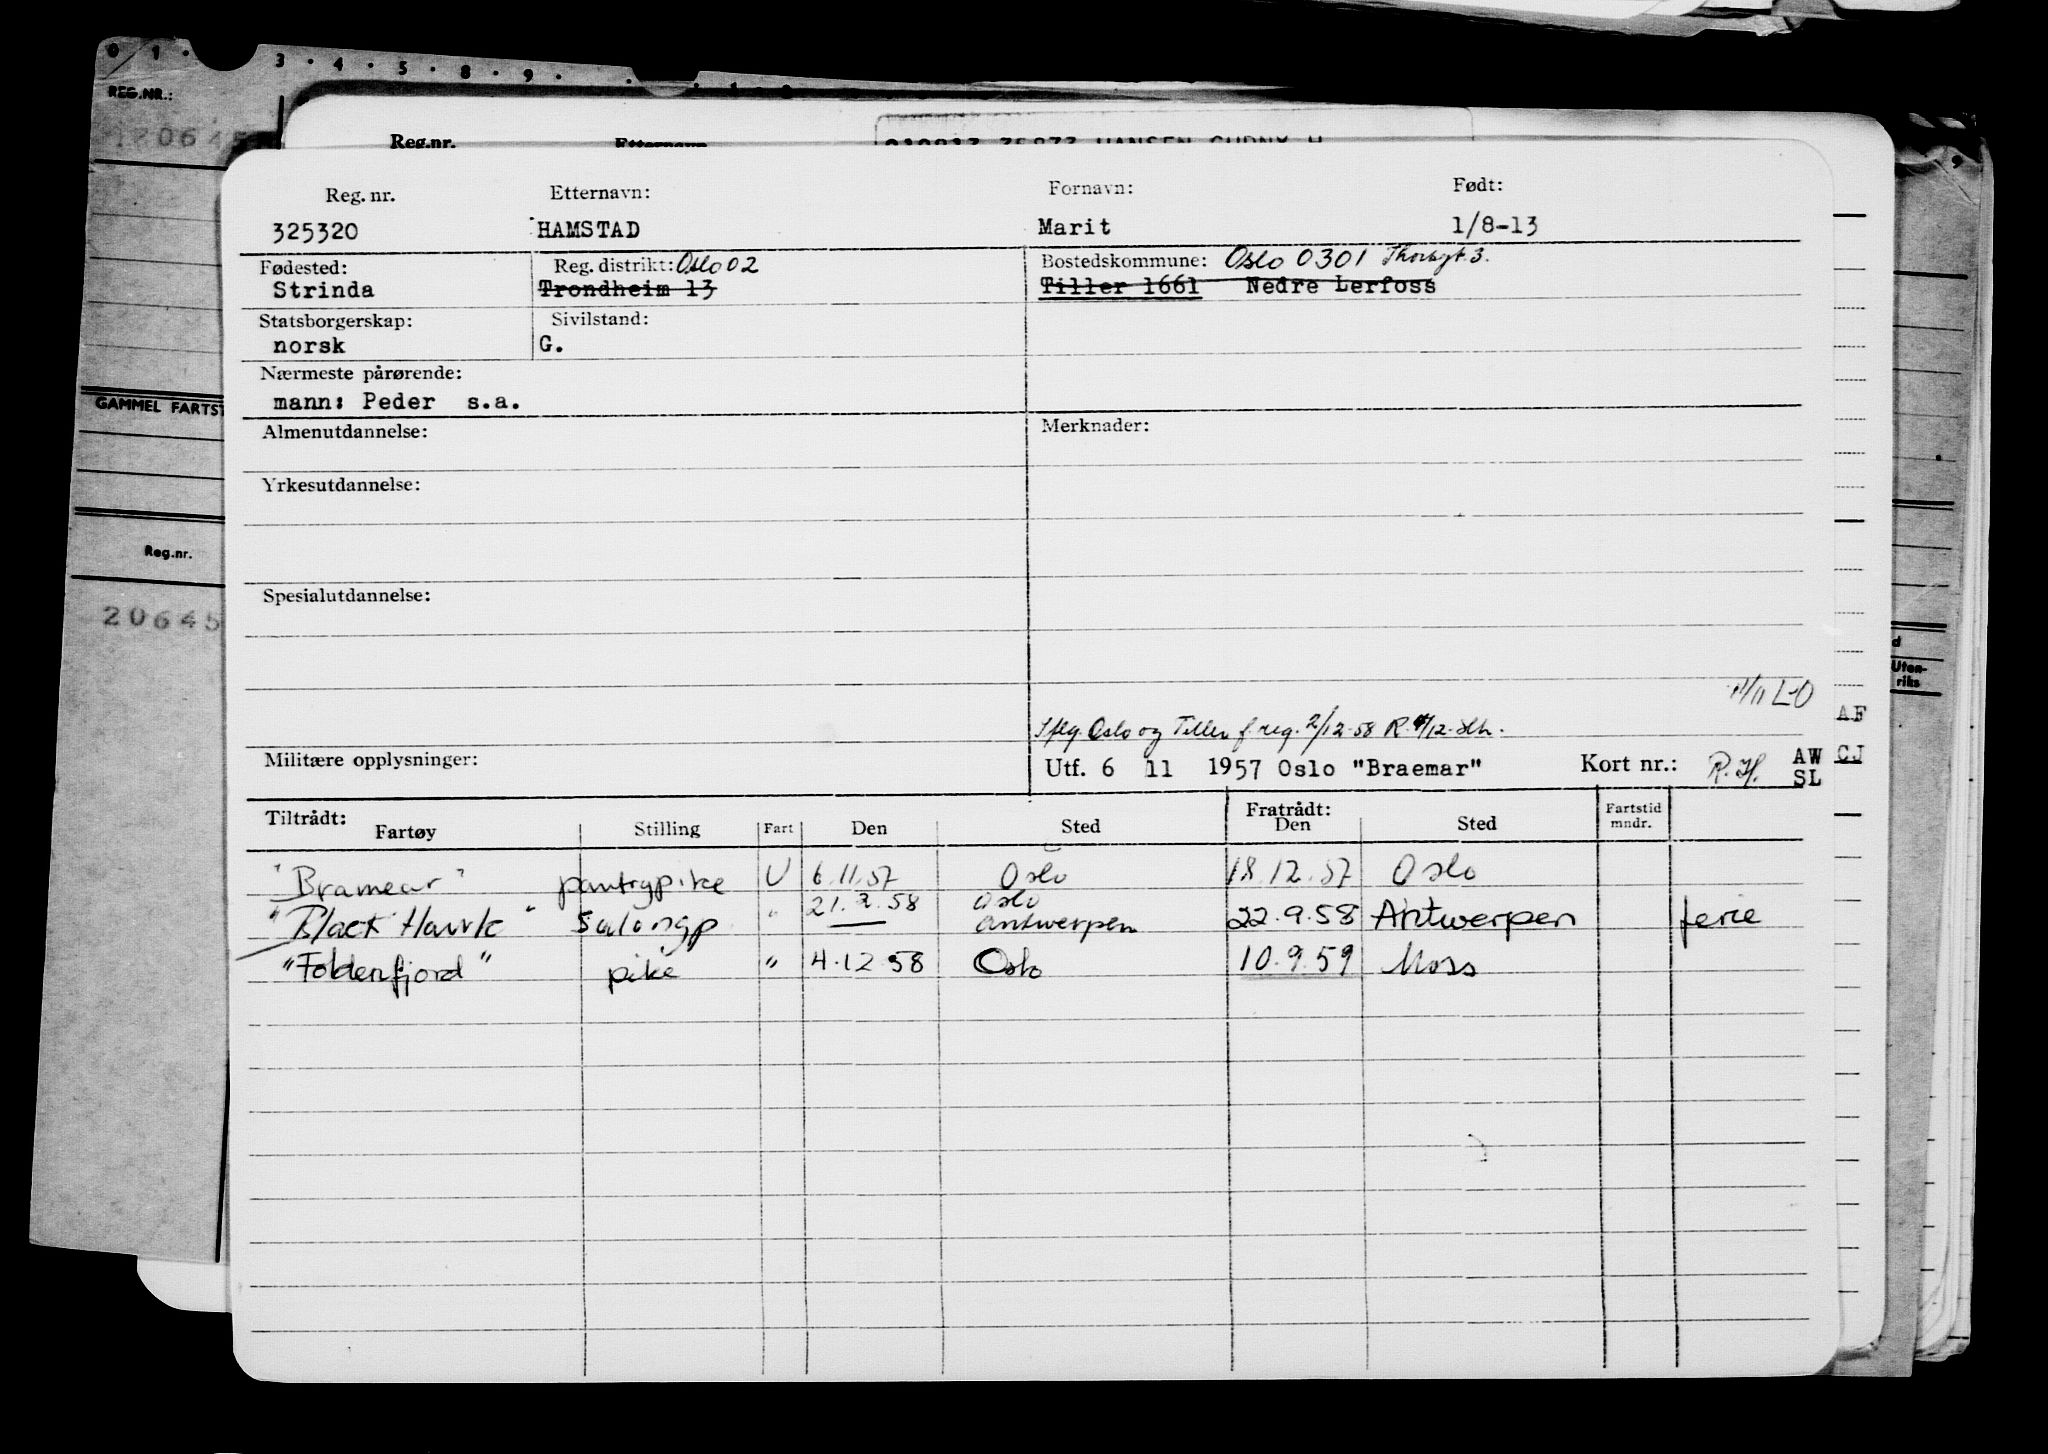 0 1 · 3 · 4 · 5 · 8 · 9 ·
REG.NR.:
20645
Reg.nr. Etternavn
35873 HANSEN GUDNY H
Reg. nr. Etternavn: Fornavn: Født:
325320 HAMSTAD Marit 1/8-13
Fødested: Reg. distrikt: Oslo 02 Bostedskommune: Oslo 0301 3.
Strinda Trondheim 13 Tiller 1661 Nedre Lerfoss
Statsborgerskap: Sivilstand:
norsk G.
Nærmeste pårørende:
mann: Peder s.a.
GAMMEL FARTST
Almenutdannelse: Merknader:
Yrkesutdannelse:
Reg.nr.
Spesialutdannelse:
20645
d
Uten-
riks
11/11 LO
AF
Iflg. Oslo og Tiller f.reg. 2/12-58 R.
Militære opplysninger: Utf. 6 11 1957 Oslo "Braemar" Kort nr.: AW CJ
SL
Tiltrådt: Fratrådt: Fartstid
Fartøy Stilling Fart Den Sted Den Sted mndr.
"Bramear" pantrypike U 6.11.57 Oslo 18.12.57 Oslo
21.2.58 Oslo
"Black Hawk" salongp " — Antwerpen 22.9.58 Antwerpen ferie
"Foldenfjord" pike " 4.12.58 Oslo 10.9.59 Moss